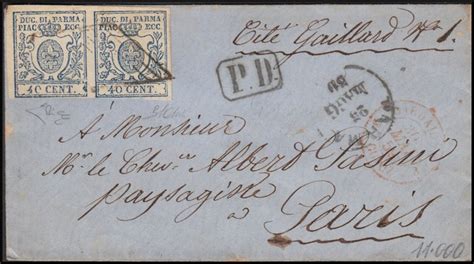 DUC. DI PARMA
PIAC. ECC.
40 CENT.
DUC. DI PARMA
PIAC. ECC.
40 CENT.
Cité Gaillard No 1.
P.D.
PARMA
23
A Monsieur
Mr. le Chevre Albert Pasini
paysagiste
Paris
11.000